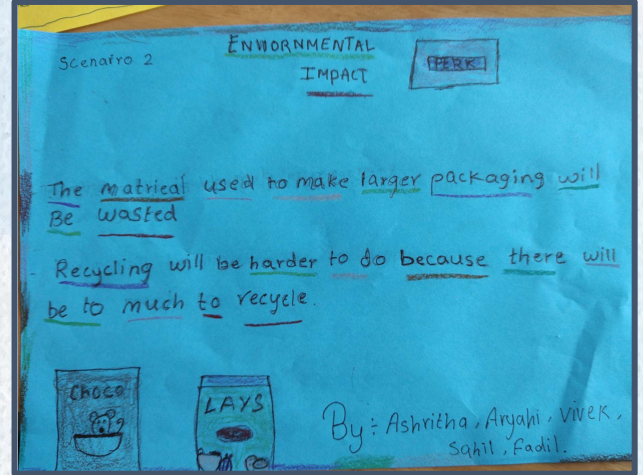 Scenairo 2
ENVIORNMENTAL
IMPACT
PERK
The matrieal used to make larger packaging will
Be wasted
Recycling will be harder to do because there will
be to much to recycle.
Choco
LAYS
By: Ashritha, Aryahi, Vivek,
Sahil, Fadil.